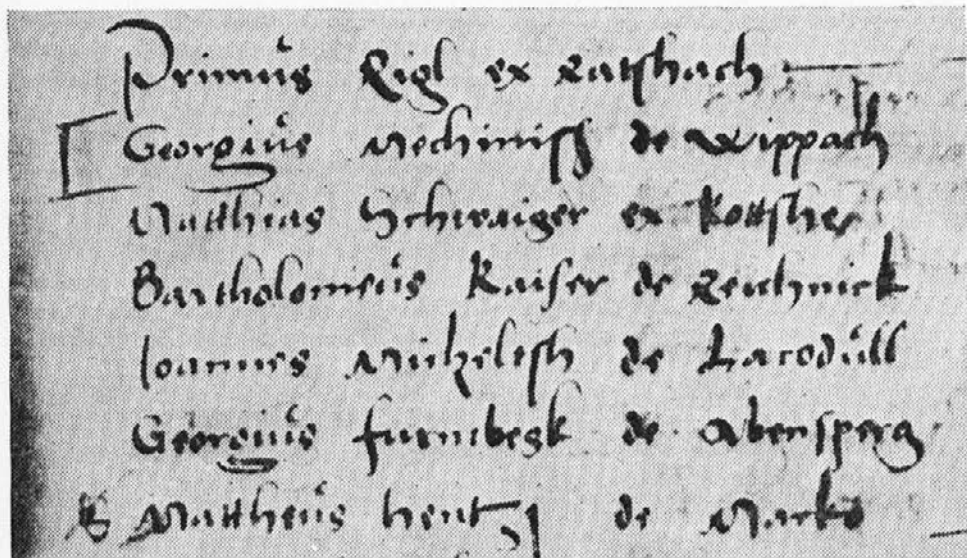 Primus Rigl ex Ratshach
Georgius Mechinish de Wippach
Matthias Schwaiger ex Kottshe
Bartholomeus Kaiser de Reichnick
Ioannes Michelish de Lacodüll
Georgius furmbegk de Abensperg
Mattheus hentz de Marks